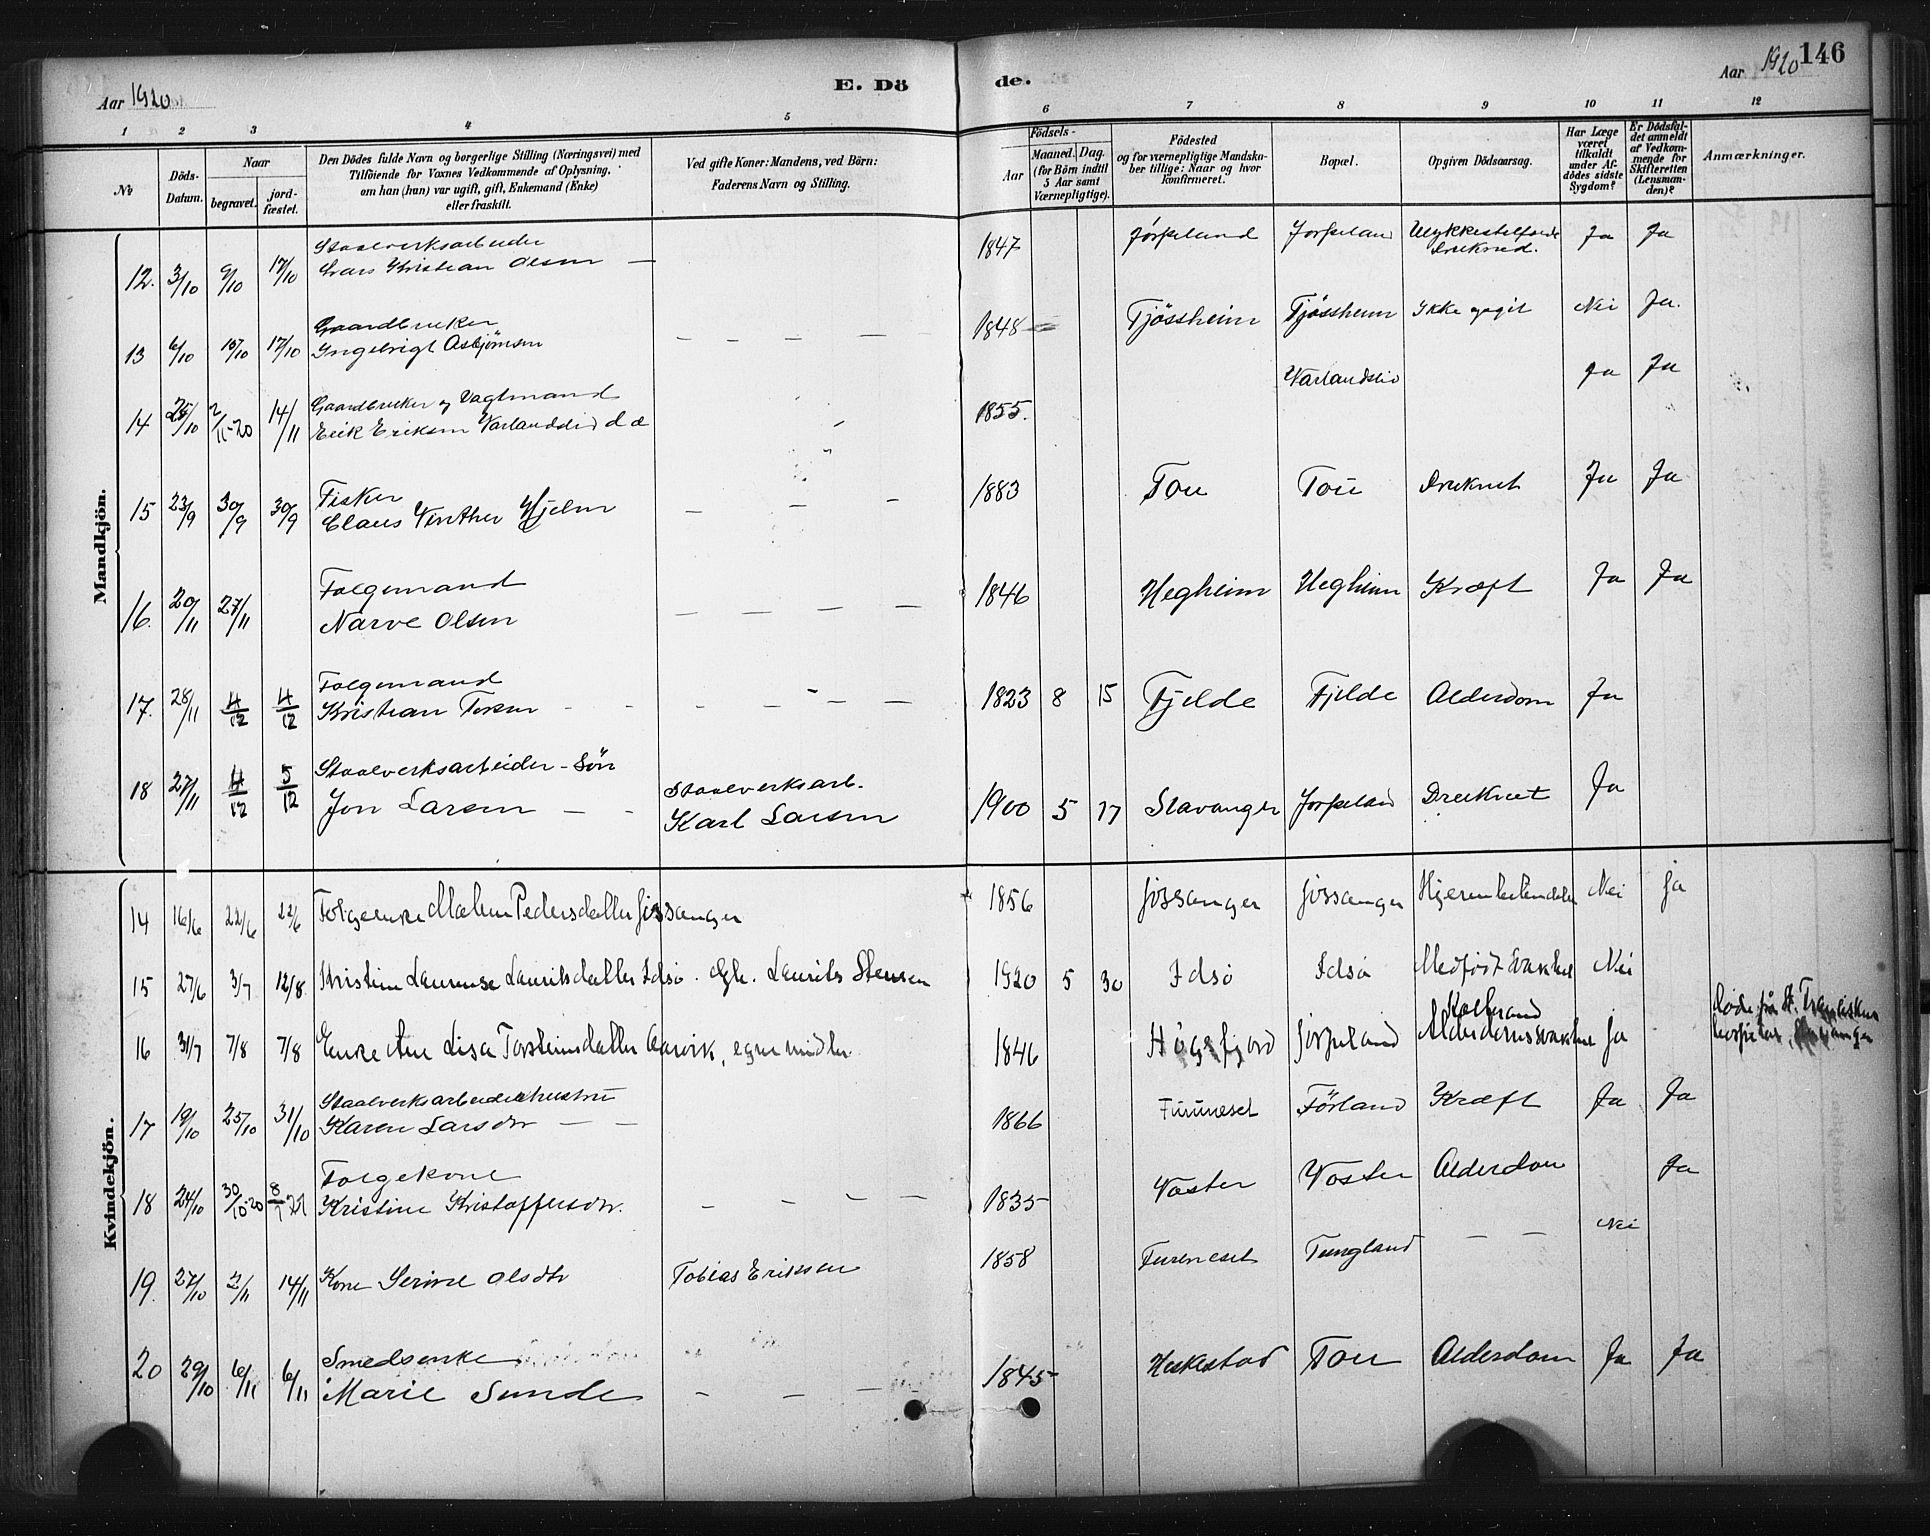 Aar 1920
E. Dö
de.
Aar 1920
146
1 2 3 4 5 6 7 8 9 10 11 12
No
Döds-
Datum.
Naar
begravet.
jord-
fæstet.
Den Dödes fulde Navn og borgerlige Stilling (Næringsvei) med
Tilföiende for Voxnes Vedkommende af Oplysning,
om han (hun) var ugift, gift, Enkemand (Enke)
eller fraskilt.
Ved gifte Koner: Mandens, ved Börn:
Faderens Navn og Stilling.
Födsels-
Aar
Maaned. Dag.
(for Börn indtil
5 Aar samt
Værnepligtige).
Födested
og for værnepligtige Mandska-
ber tillige: Naar og hvor
konfirmeret.
Bopæl.
Opgiven Dödsaarsag.
Har Læge
været
tilkaldt
under Af-
dödes sidste
Sygdom?
Er Dödsfal-
det anmeldt
af Vedkom-
mende for
Skifteretten
(Lensman-
den)?
Anmærkninger.
Mandkjön.
Staalverksarbeider
12. 3/10 9/10 17/10 Lars Kristian Olsen — 1847 Jørpeland Jørpeland Ulykkestilfælde Ja Ja
Druknet.
Gaardbruker
13 6/10 15/10 17/10 Ingebrigt Asbjörnsen — — — — — 1848 Tjössheim Tjössheim Ikke opgit Nei Ja.
Gaardbruker og Vagtmand
14 25/10 2/11-20 14/11 Erik Eriksen Varlandslid 1855. Varlandslid Ja Ja
Fisker
15 23/9 30/9 30/9 Claus Vinther Hjelm — — — 1883 Tou Tou Druknet Ja Ja
Folgemand
16. 20/11 27/11 Narve Olsen — — — — — 1846 Hegheim Hegheim Kræft Ja Ja
Folgemand
17. 28/11 4/12 4/12 Kristian Torsen 1823 8 15 Fjelde Fjelde Alderdom Ja
Staalverksarbeider-Sön
18 27/11 4/12 5/12 Jon Larsen — — Staalverksarb.
Karl Larsen 1900 5 17 Stavanger Jørpeland Druknet Ja
Kvindekjön.
14 16/6 22/6 22/6 Folgeenke Malene Pedersdatter Jøssanger 1856 Jøssanger Jøssanger Nei Ja
15 27/6 3/7 12/8 Kristine Laurense Lauritsdatter Idsø. Laurits Stensen 1920 5 30 Idsø Idsø Medfødt svakhet Nei
16 31/7 7/8 7/8 Enke Ane Lisa Torsteinsdatter, egne midler. 1846 Høgsfjord Jørpeland Koldbrand
Alderdomssvakhet Ja Døde på St. Franciskus
hospital, Stavanger
Staalverksarbeiderhustru
17 19/10 25/10 31/10 Karen Larsdtr — — 1866 Furuneset Förland Kræft Ja Ja
Folgekone
18 24/10 30/10-20 8/1 21 Kristine Kristoffersdtr. — — — — 1835 Voster Voster Alderdom Ja
19. 27/10 2/11 14/11 Kone Serine Olsdtr Tobias Eriksen 1858 Fureneset Tungland — — Nei
Smedsenke
20 29/10 6/11 6/11 Marie Sunde — — — — 1845 Heskestad Tou Alderdom Ja Ja